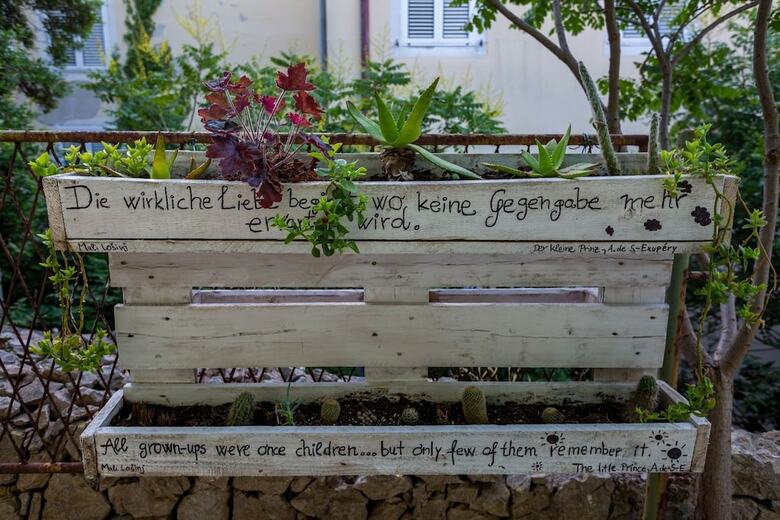 Die wirkliche Liebe wo keine Gegengabe mehr
wird.
Mali Lošinj
Der Kleine Prinz, A. de S-Exupéry
All grown-ups were once children...but only few of them remember it.
Mali Lošinj
The little Prince, A. de S-E